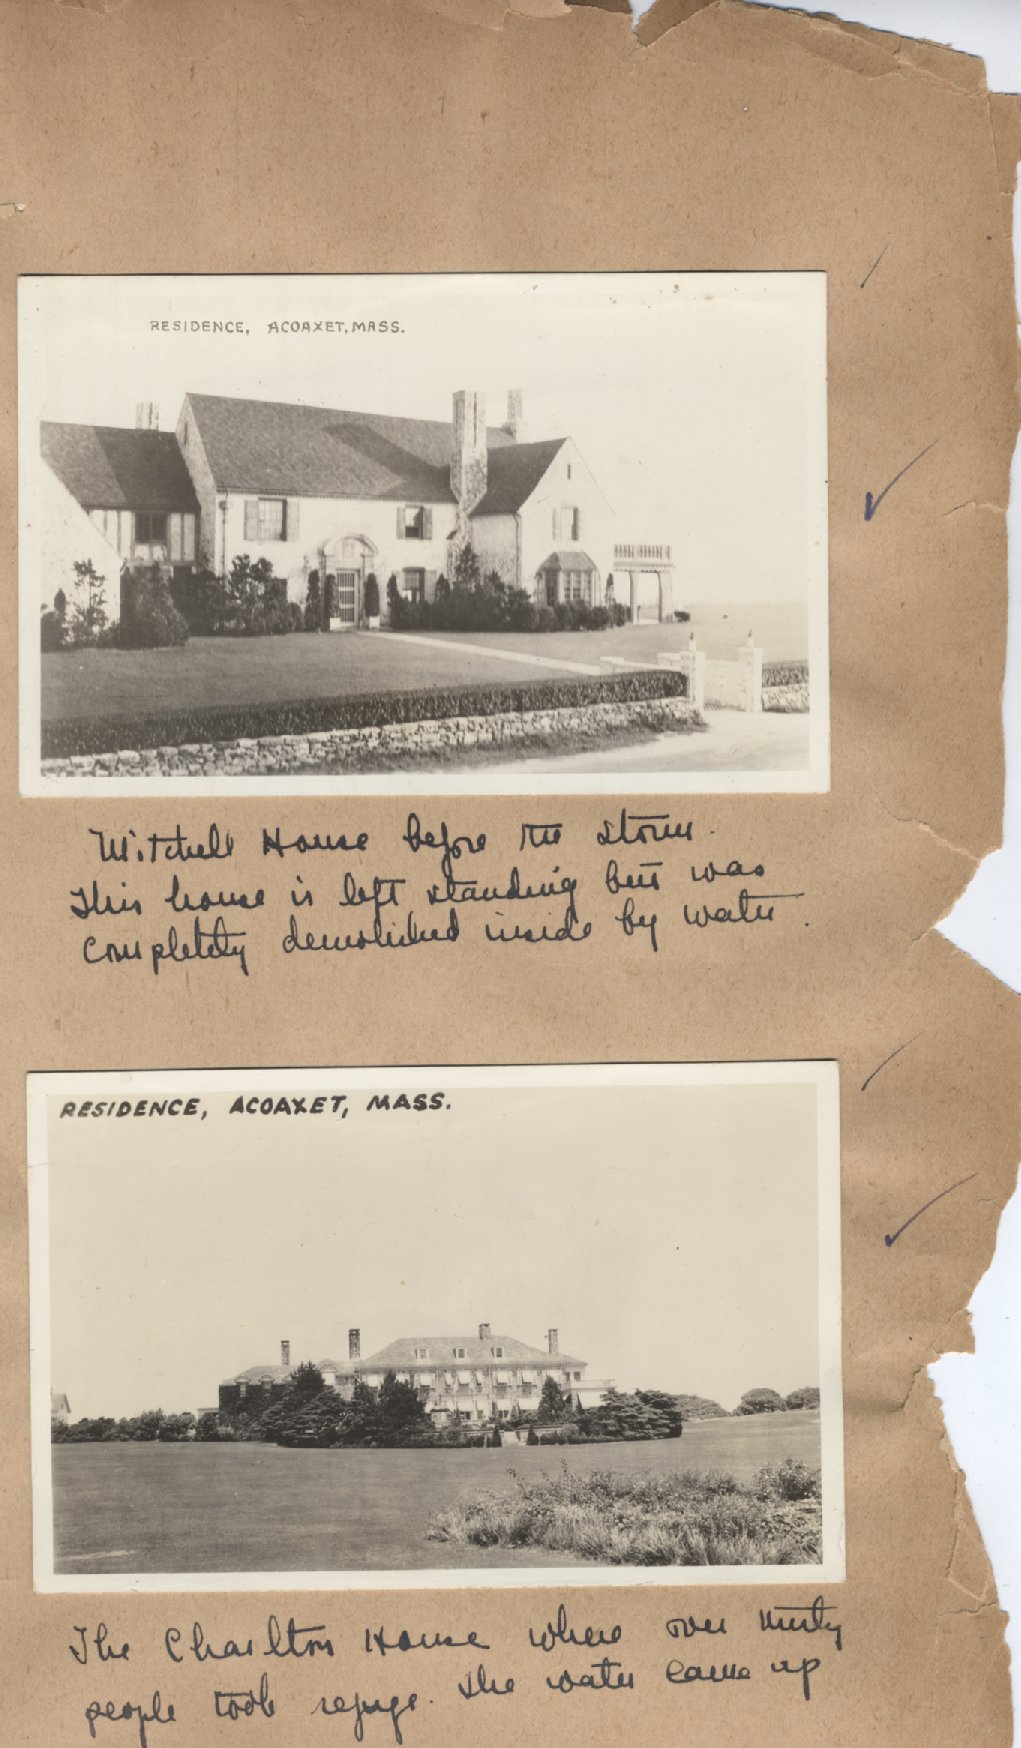 RESIDENCE, ACOAXET, MASS.
Mitchell House before the storm.
This house is left standing but was
completely demolished inside by water.
RESIDENCE, ACOAXET, MASS.
The Charlton House where over thirty
people took refuge. The water came up